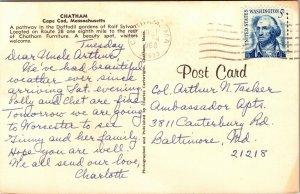 CHATHAM
Cape Cod, Massachusetts
A pathway in the Daffodil gardens of Ralf Sylvan.
Located on Route 28 one eighth mile to the rear
of Chatham Furniture. A beauty spot, visitors
welcome.
Tuesday
Dear Uncle Arthur,
We've had beautiful
weather ever since
arriving Sat. evening.
Polly and Chet are fine.
Tomorrow we are going
to Worcester to see
Ginny and her family.
Hope you are well.
We all send our love,
Charlotte
Post Card
WASHINGTON
5
Col. Arthur N. Tasker
Ambassador Apts.
3811 Canterbury Rd.
Baltimore, Md
21218